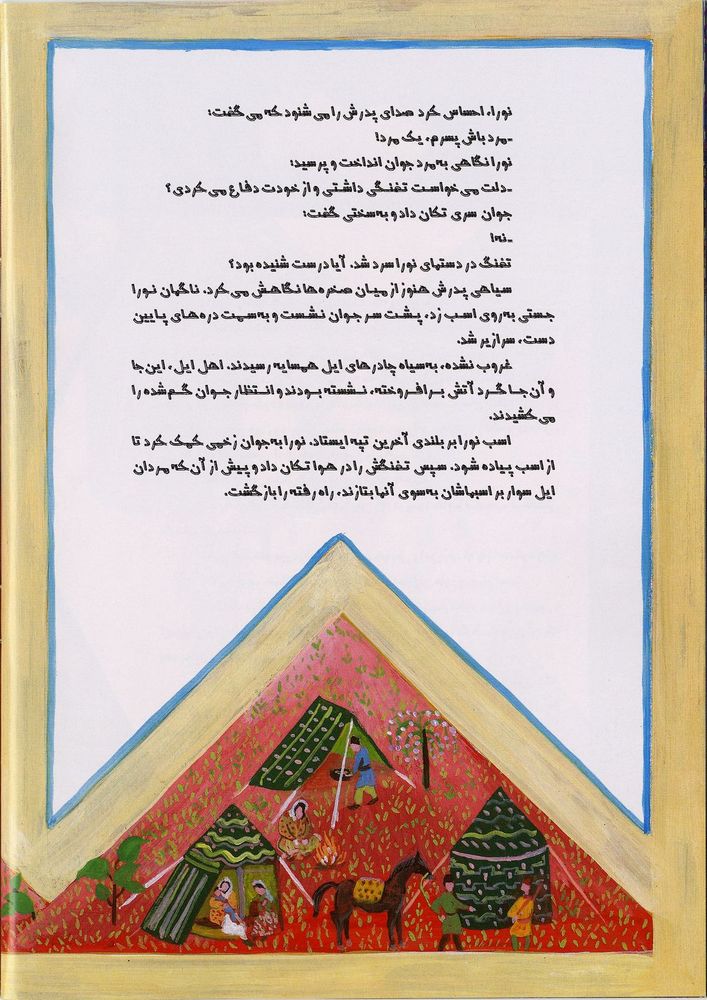 نورا، احساس کرد صدای پدرش را می شنود که می گفت:
ـ مرد باش پسرم، یک مرد!
نورا نگاهی به مرد جوان انداخت و پرسید:
ـ دلت می خواست تفنگی داشتی و از خودت دفاع می کردی؟
جوان سری تکان داد و به سختی گفت:
ـ نه!
تفنگ در دستهای نورا سرد شد. آیا درست شنیده بود؟
سیاهی پدرش هنوز از میان صخره ها نگاهش می کرد. ناگهان نورا
جستی به روی اسب زد، پشت سر جوان نشست و به سمت دره های پایین
دست، سرازیر شد.
غروب نشده، به سیاه چادرهای ایل همسایه رسیدند. اهل ایل، این جا
و آن جا گرد آتش برافروخته، نشسته بودند و انتظار جوان گم شده را
می کشیدند.
اسب نورا بر بلندی آخرین تپه ایستاد. نورا به جوان زخمی کمک کرد تا
از اسب پیاده شود. سپس تفنگش را در هوا تکان داد و پیش از آن که مردان
ایل سوار بر اسبهاشان به سوی آنها بتازند، راه رفته را بازگشت.